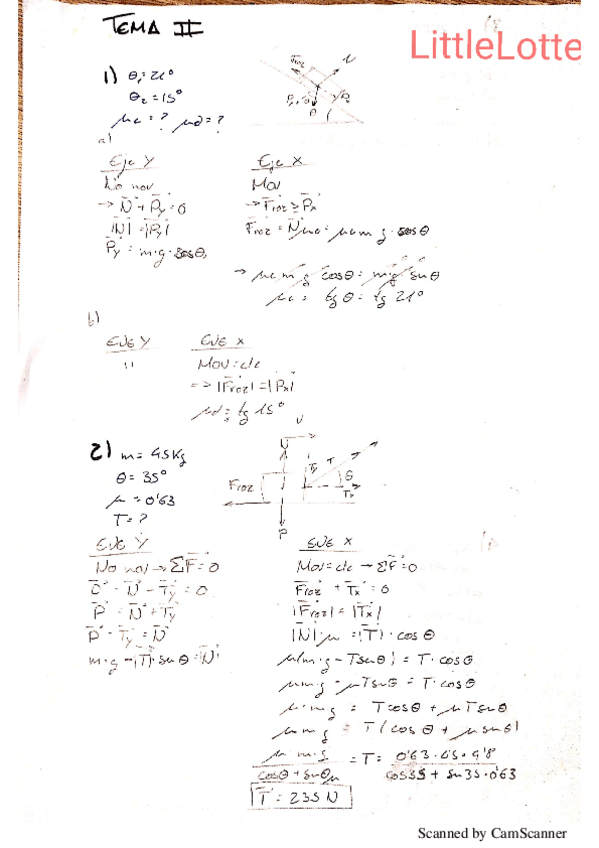 TEMA II
LittleLotte
1) θ₁ = 21°
θ₂ = 15°
μe = ? μd = ?
Froz N
P
a)
Eje Y
No mov
→ N + Py = 0
|N| = |Py|
Py = m·g·cosθ
Eje X
Mov
→ Froz ≥ Px
Froz = N·μe = μe m g · cosθ
→ μe m g cosθ = m·g senθ
μe = tg θ = tg 21°
b)
EJE Y
11
EJE X
Mov = cte
=> |Froz| = |Px|
μd = tg 15°
2) m = 45 Kg
θ = 35°
μ = 0'63
T = ?
V
N
T
Ty
θ
Froz
Tx
P
EJE Y
No mov → ΣF = 0
P - N - Ty = 0
P = N + Ty
P - Ty = N
m·g - |T|·senθ = |N|
EJE X
Mov = cte → ΣF = 0
Froz + Tx = 0
|Froz| = |Tx|
|N|·μ = |T|·cosθ
μ(m·g - Tsenθ) = T·cosθ
μm·g - μTsenθ = T·cosθ
μ·m·g = Tcosθ + μTsenθ
μmg = T(cosθ + μsenθ)
μ·m·g
cosθ + senθμ
= T =
cos35 + sen35·0'63
T = 235 N
Scanned by CamScanner